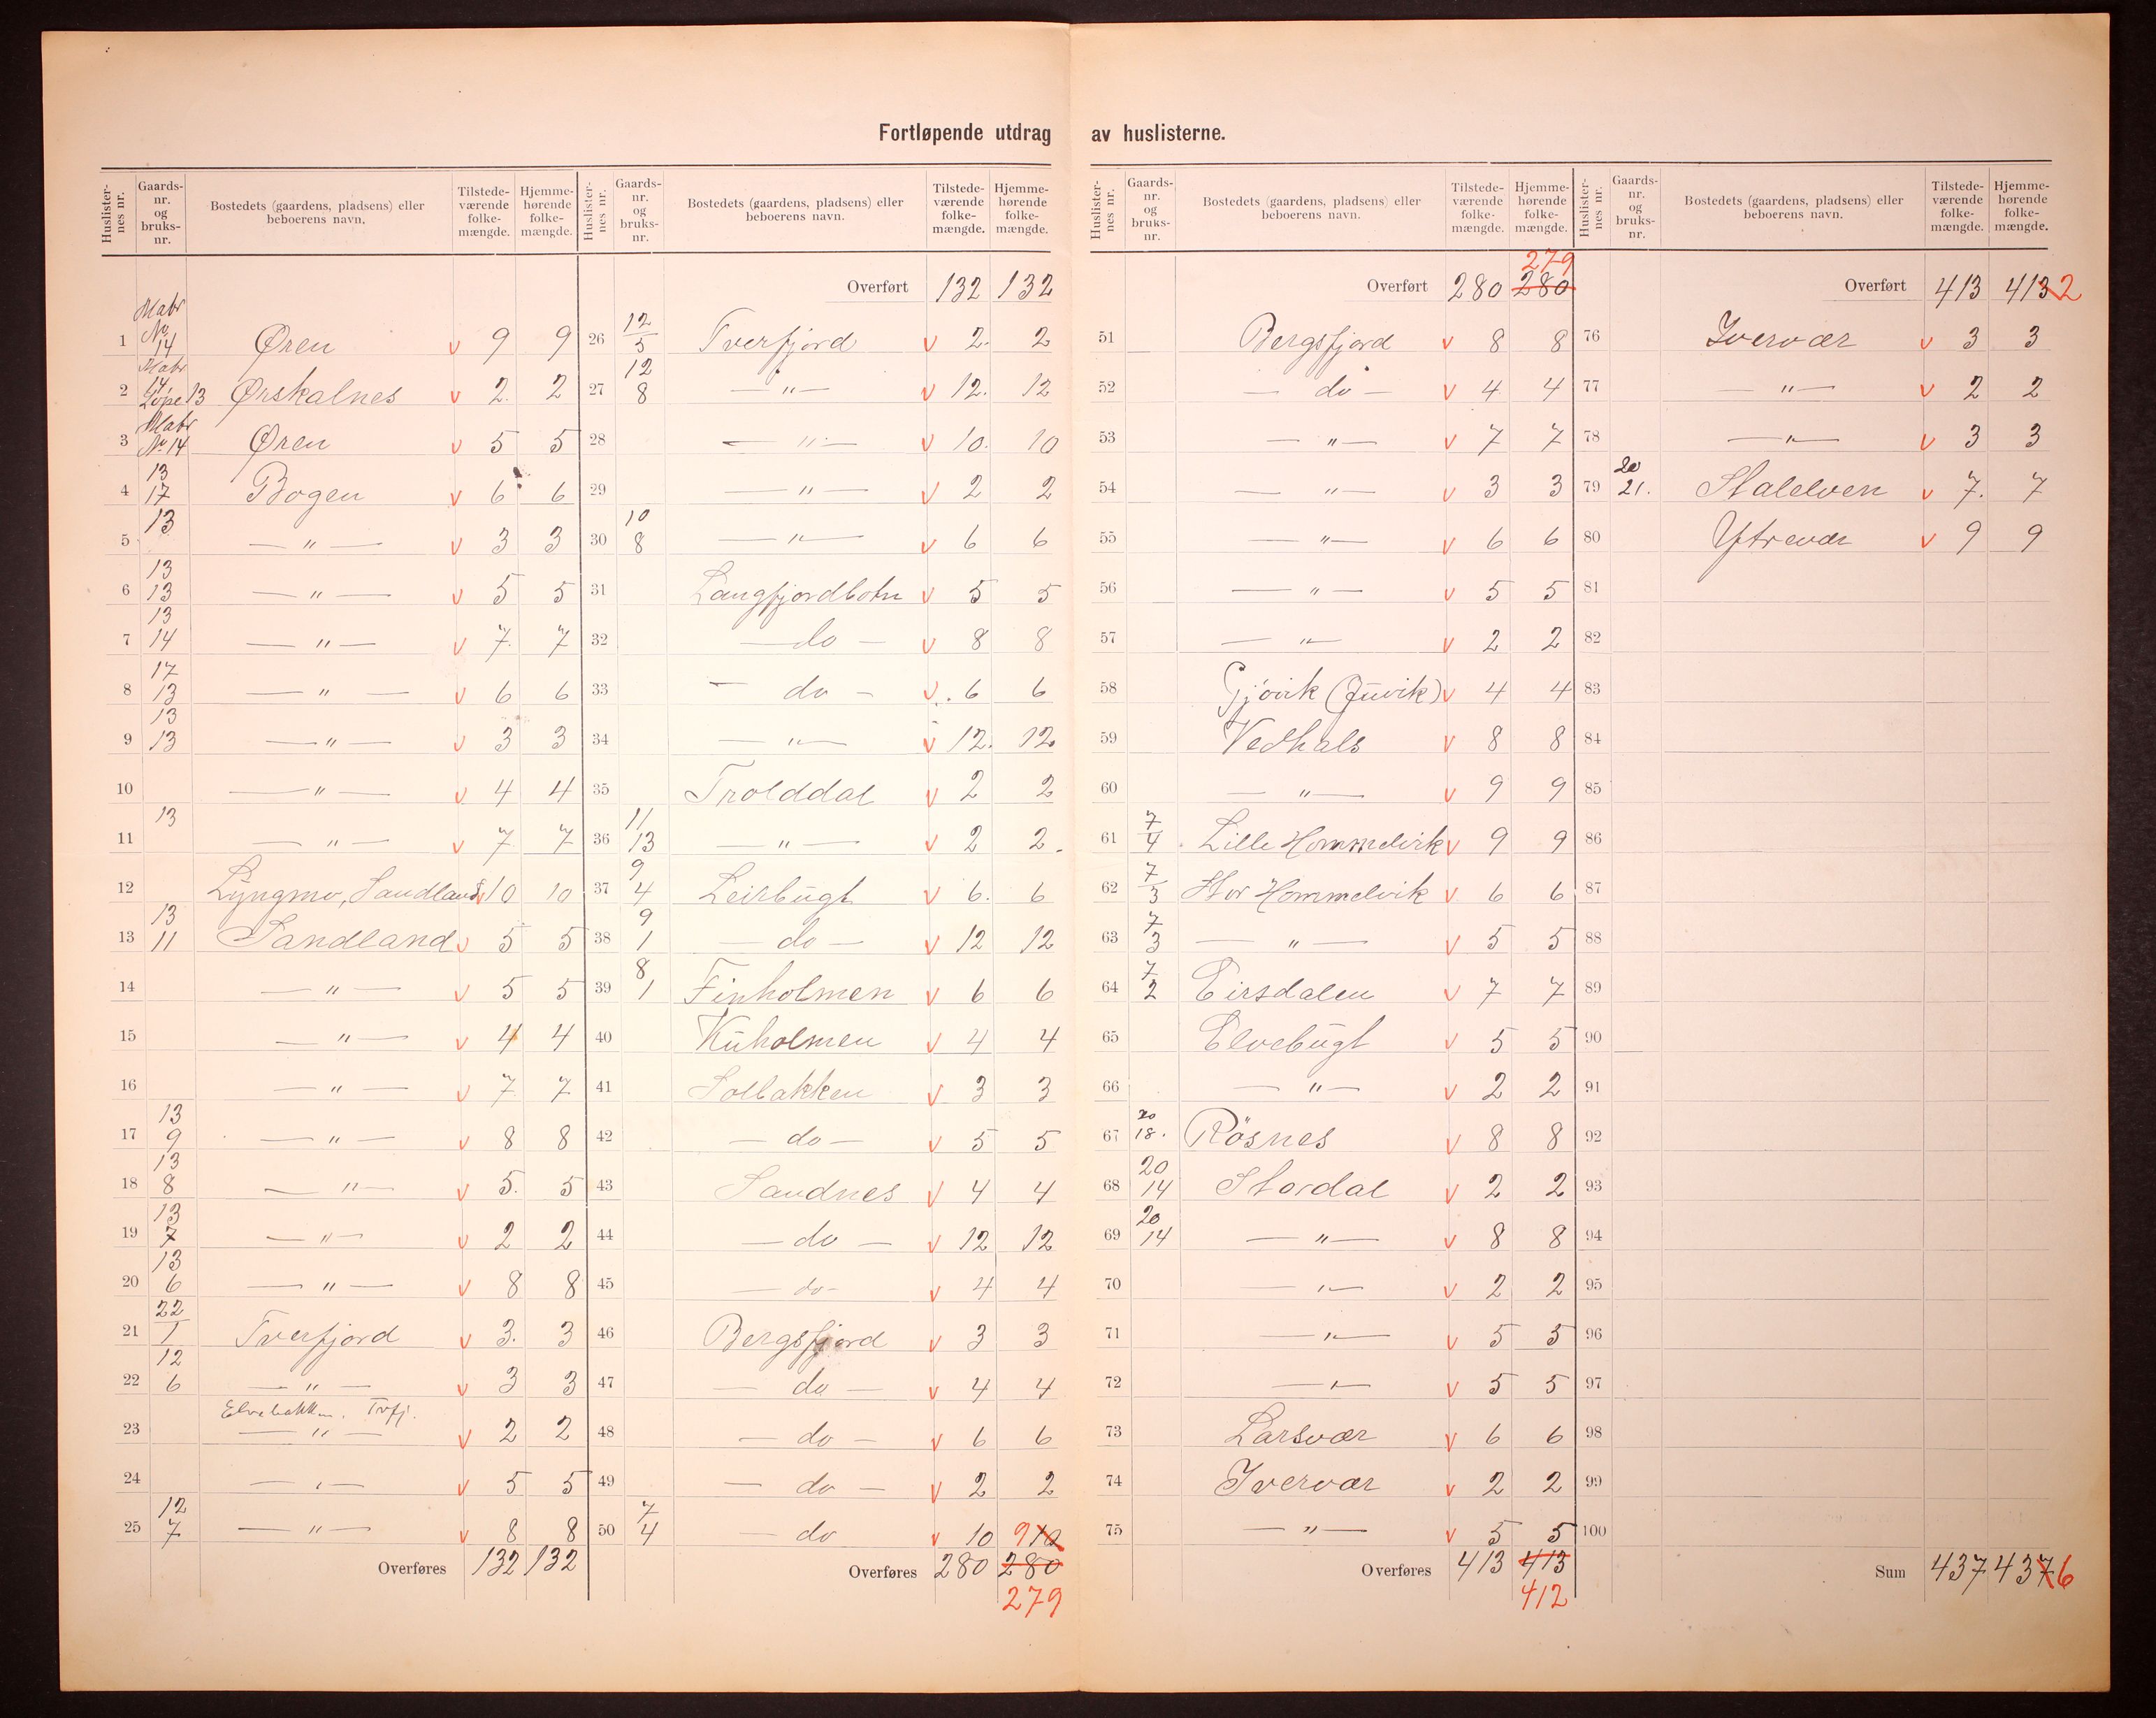 Fortløpende utdrag av huslisterne.
Huslister-nes nr. Gaards-nr. og bruks-nr. Bostedets (gaardens, pladsens) eller beboerens navn. Tilstede-værende folke-mængde. Hjemme-hørende folke-mængde.
1 Matr No 14 Øren v 9 9
2 Matr 14, Løpe 13 Ørskalnes v 2 2
3 Matr No 14 Øren v 5 5
4 13 17 Bogen v 6 6
5 13 — " — v 3 3
6 13 13 — " — v 5 5
7 13 14 — " — v 7 7
8 17 13 — " — v 6 6
9 13 13 — " — v 3 3
10 — " — v 4 4
11 13 — " — v 7 7
12 Lyngmo, Sandland v 10 10
13 13 11 Sandland v 5 5
14 — " — v 5 5
15 — " — v 4 4
16 — " — v 7 7
17 13 9 — " — v 8 8
18 13 8 — " — v 5 5
19 13 7 — " — v 2 2
20 13 6 — " — v 8 8
21 22 1 Tverfjord v 3 3
22 12 6 — " — v 3 3
23 Elvebakken. Tvfj. — " — v 2 2
24 — " — v 5 5
25 12 7 — " — v 8 8
Overføres 132 132
Huslister-nes nr. Gaards-nr. og bruks-nr. Bostedets (gaardens, pladsens) eller beboerens navn. Tilstede-værende folke-mængde. Hjemme-hørende folke-mængde.
Overført 132 132
26 12 5 Tverfjord v 2 2
27 12 8 — " — v 12 12
28 — " — v 10 10
29 — " — v 2 2
30 10 8 — " — v 6 6
31 Langfjordbotn v 5 5
32 — do — v 8 8
33 — do — v 6 6
34 — " — v 12 12
35 Trolddal v 2 2
36 11 13 — " — v 2 2
37 9 4 Leirbugt v 6 6
38 9 1 — do — v 12 12
39 8 1 Finholmen v 6 6
40 Kuholmen v 4 4
41 Solbakken v 3 3
42 — do — v 5 5
43 Sandnes v 4 4
44 — do — v 12 12
45 — do — v 4 4
46 Bergsfjord v 3 3
47 — do — v 4 4
48 — do — v 6 6
49 — do — v 2 2
50 7 4 — do v 10 9 10
Overføres 280 280
279
Huslister-nes nr. Gaards-nr. og bruks-nr. Bostedets (gaardens, pladsens) eller beboerens navn. Tilstede-værende folke-mængde. Hjemme-hørende folke-mængde.
279
Overført 280 280
51 Bergsfjord v 8 8
52 — do — v 4 4
53 — " — v 7 7
54 — " — v 3 3
55 — " — v 6 6
56 — " — v 5 5
57 — " — v 2 2
58 Gjövik (Juvik) v 4 4
59 Vedhals v 8 8
60 — " — v 9 9
61 7 4 Lille Hommelvik v 9 9
62 7 3 Stor Hommelvik v 6 6
63 7 3 — " — v 5 5
64 7 2 Eirsdalen v 7 7
65 Elvebugt v 5 5
66 — " — v 2 2
67 20 18. Rösnes v 8 8
68 20 14 Stordal v 2 2
69 20 14 — " — v 8 8
70 — " — v 2 2
71 — " — v 5 5
72 — " — v 5 5
73 Larsvær v 6 6
74 Ivervær v 2 2
75 — " — v 5 5
Overføres 413 413
412
Huslister-nes nr. Gaards-nr. og bruks-nr. Bostedets (gaardens, pladsens) eller beboerens navn. Tilstede-værende folke-mængde. Hjemme-hørende folke-mængde.
Overført 413 413 2
76 Ivervær v 3 3
77 — " — v 2 2
78 — " — v 3 3
79 20 21. Stalelven v 7 7
80 Ytrevær v 9 9
81
82
83
84
85
86
87
88
89
90
91
92
93
94
95
96
97
98
99
100
Sum 437 437 6